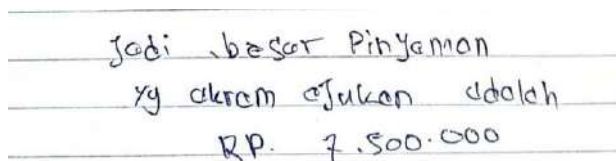 Jadi besar Pinyaman
yg akram ajukan adalah
RP. 7.500.000